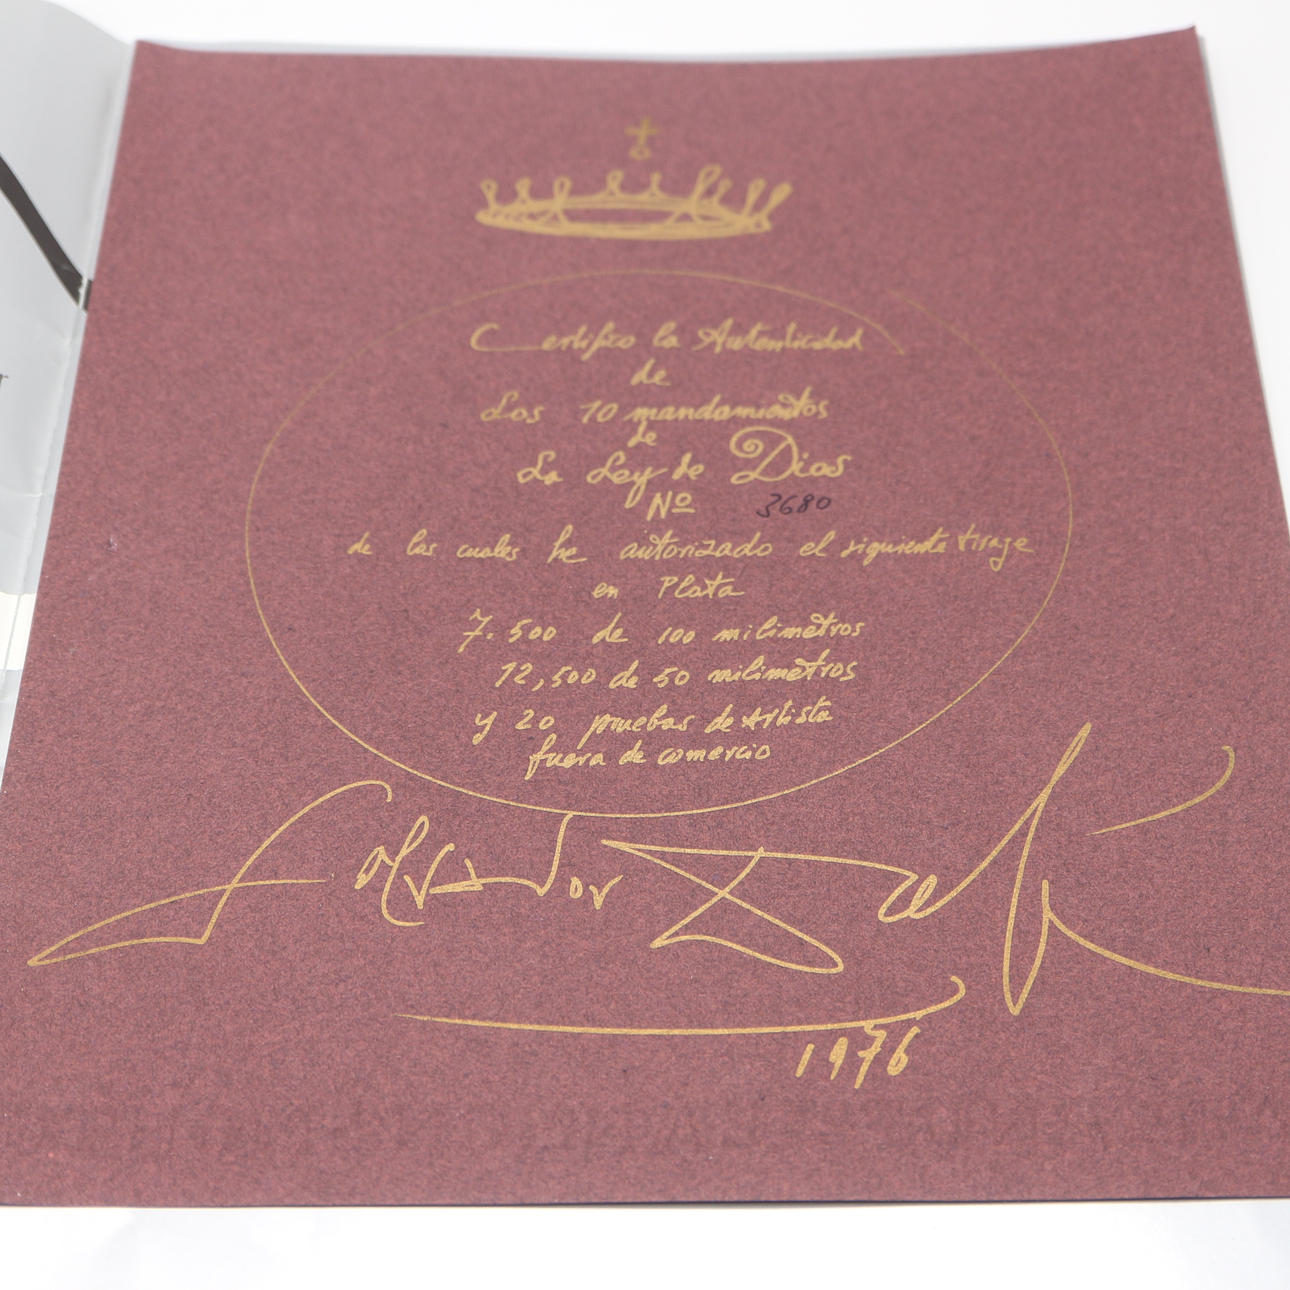 Certifico la Autenticidad
de
Los 10 mandamientos
de
La Ley de Dios
Nº 3680
de las cuales he autorizado el siguiente tiraje
en Plata
7.500 de 100 milimetros
12,500 de 50 milimetros
y 20 pruebas de Artista
fuera de comercio
Salvador Dalí
1976